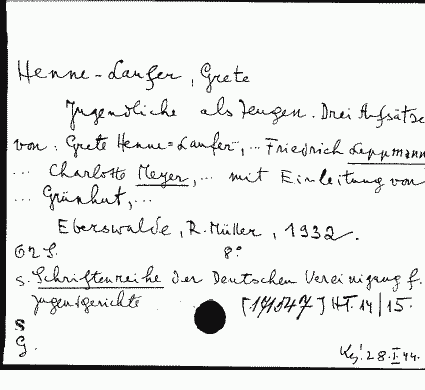 Henne-Laufer, Grete
Jugendliche als Zeugen. Drei Aufsätze
von. Grete Henne-Laufer, ... Friedrich Leppmann
... Charlotte Meyer, ... mit Einleitung von
... Grünhut, ...
Eberswalde, R. Müller, 1932.
62 S. 8°
s. Schriftenreihe der Deutschen Vereinigung f.
Jugendgerichte [191547] HT. 14/15.
S
G. 28.I.44.